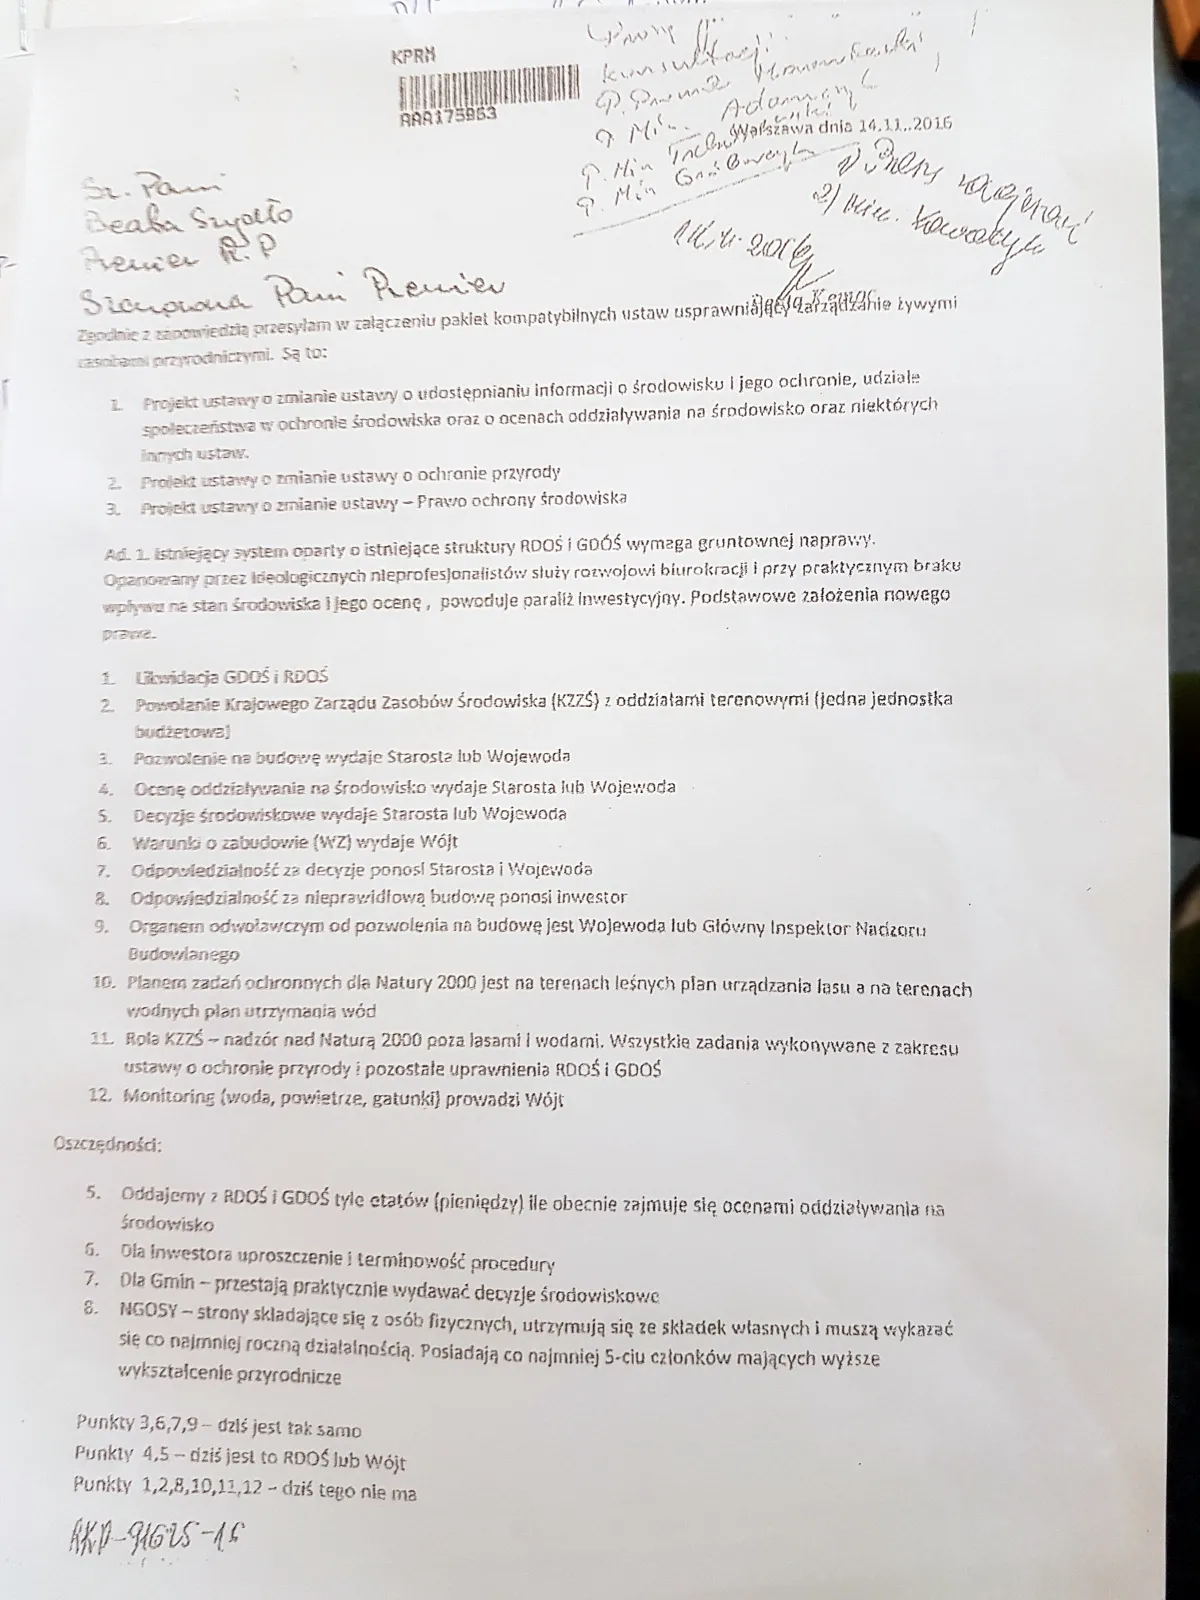 KPRM
AAA175963
konsultacji:
P. Min. Adamczyk
P. Min
P. Min Gróbarczyk
Warszawa dnia 14.11..2016
2) Min. Kowalczyk
2016
Sz. Pani
Beata Szydło
Premier R.P
Szanowna Pani Premier
Beata Kempa
Zgodnie z zapowiedzią przesyłam w załączeniu pakiet kompatybilnych ustaw usprawniający zarządzanie żywymi
zasobami przyrodniczymi. Są to:
1. Projekt ustawy o zmianie ustawy o udostępnianiu informacji o środowisku i jego ochronie, udziale
społeczeństwa w ochronie środowiska oraz o ocenach oddziaływania na środowisko oraz niektórych
innych ustaw.
2. Projekt ustawy o zmianie ustawy o ochronie przyrody
3. Projekt ustawy o zmianie ustawy – Prawo ochrony środowiska
Ad. 1. Istniejący system oparty o istniejące struktury RDOŚ i GDOŚ wymaga gruntownej naprawy.
Opanowany przez ideologicznych nieprofesjonalistów służy rozwojowi biurokracji i przy praktycznym braku
wpływu na stan środowiska i jego ocenę , powoduje paraliż inwestycyjny. Podstawowe założenia nowego
prawa.
1. Likwidacja GDOŚ i RDOŚ
2. Powołanie Krajowego Zarządu Zasobów Środowiska (KZZŚ) z oddziałami terenowymi (jedna jednostka
budżetowa)
3. Pozwolenie na budowę wydaje Starosta lub Wojewoda
4. Ocenę oddziaływania na środowisko wydaje Starosta lub Wojewoda
5. Decyzje środowiskowe wydaje Starosta lub Wojewoda
6. Warunki o zabudowie (WZ) wydaje Wójt
7. Odpowiedzialność za decyzje ponosi Starosta i Wojewoda
8. Odpowiedzialność za nieprawidłową budowę ponosi inwestor
9. Organem odwoławczym od pozwolenia na budowę jest Wojewoda lub Główny Inspektor Nadzoru
Budowlanego
10. Planem zadań ochronnych dla Natury 2000 jest na terenach leśnych plan urządzania lasu a na terenach
wodnych plan utrzymania wód
11. Rola KZZŚ – nadzór nad Naturą 2000 poza lasami i wodami. Wszystkie zadania wykonywane z zakresu
ustawy o ochronie przyrody i pozostałe uprawnienia RDOŚ i GDOŚ
12. Monitoring (woda, powietrze, gatunki) prowadzi Wójt
Oszczędności:
5. Oddajemy z RDOŚ i GDOŚ tyle etatów (pieniędzy) ile obecnie zajmuje się ocenami oddziaływania na
środowisko
6. Dla inwestora uproszczenie i terminowość procedury
7. Dla Gmin – przestają praktycznie wydawać decyzje środowiskowe
8. NGOSY – strony składające się z osób fizycznych, utrzymują się ze składek własnych i muszą wykazać
się co najmniej roczną działalnością. Posiadają co najmniej 5-ciu członków mających wyższe
wykształcenie przyrodnicze
Punkty 3,6,7,9 – dziś jest tak samo
Punkty 4,5 – dziś jest to RDOŚ lub Wójt
Punkty 1,2,8,10,11,12 – dziś tego nie ma